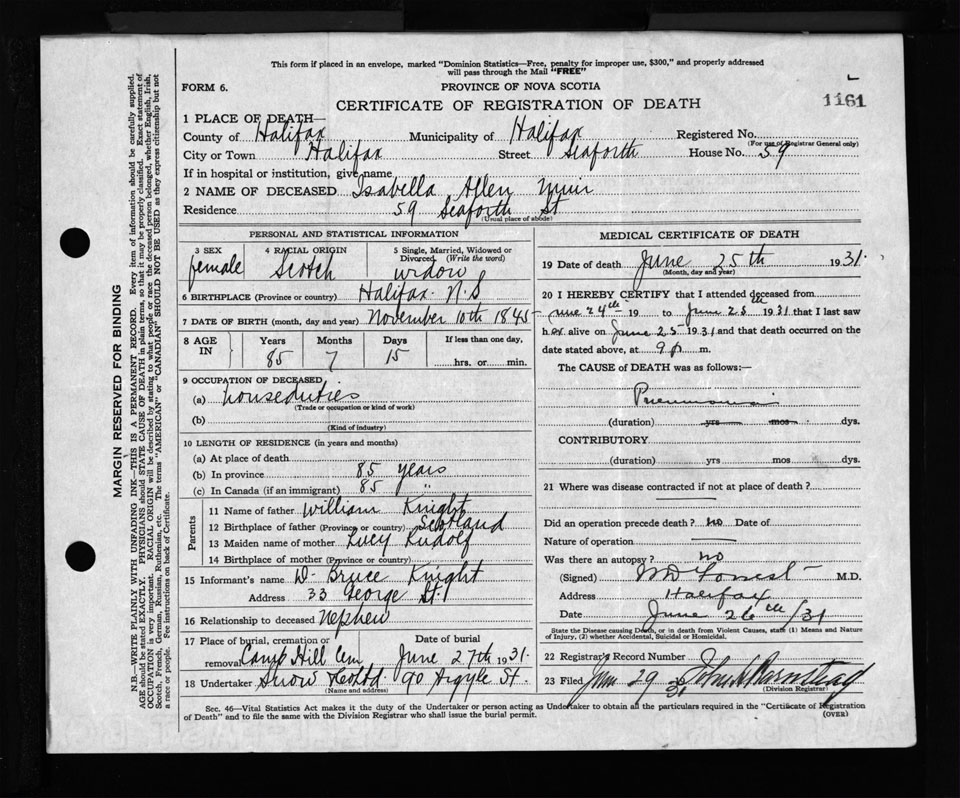 This form if placed in an envelope, marked "Dominion Statistics—Free, penalty for improper use, $300," and properly addressed
will pass through the Mail "FREE"
FORM 6.
PROVINCE OF NOVA SCOTIA
CERTIFICATE OF REGISTRATION OF DEATH
1161
1 PLACE OF DEATH—
County of Halifax Municipality of Halifax Registered No.
(For use of Registrar General only)
City or Town Halifax Street Seaforth House No. 59
If in hospital or institution, give name
2 NAME OF DECEASED Isabella Allen Muir
Residence 59 Seaforth St
(Usual place of abode)
PERSONAL AND STATISTICAL INFORMATION
3 SEX
female
4 RACIAL ORIGIN
Scotch
5 Single, Married, Widowed or
Divorced (Write the word)
widow
6 BIRTHPLACE (Province or country) Halifax. N.S
7 DATE OF BIRTH (month, day and year) November 10th 1845
8 AGE IN
Years 85
Months 7
Days 15
If less than one day,
hrs. or min.
9 OCCUPATION OF DECEASED
(a) houseduties
(Trade or occupation or kind of work)
(b)
(Kind of industry)
10 LENGTH OF RESIDENCE (in years and months)
(a) At place of death
(b) In province 85 years
(c) In Canada (if an immigrant) 85 "
Parents
11 Name of father William Knight
12 Birthplace of father (Province or country) Scotland
13 Maiden name of mother Lucy Rudolf
14 Birthplace of mother (Province or country)
15 Informant's name D. Bruce Knight
Address 33 George St.
16 Relationship to deceased Nephew
17 Place of burial, cremation or
removal Camp Hill Cem
Date of burial
June 27th 1931.
18 Undertaker Snow & Co Ltd. 90 Argyle St.
(Name and address)
MEDICAL CERTIFICATE OF DEATH
19 Date of death June 25th 1931.
(Month, day and year)
20 I HEREBY CERTIFY that I attended deceased from
June 24th 19 to June 25th 1931 that I last saw
her alive on June 25 1931 and that death occurred on
date stated above, at 9 p m.
The CAUSE of DEATH was as follows:—
Pneumonia
(duration) yrs mos dys.
CONTRIBUTORY
(duration) yrs mos dys.
21 Where was disease contracted if not at place of death?
Did an operation precede death? no Date of
Nature of operation
Was there an autopsy? no
(Signed) W D Forrest M.D.
Address Halifax
Date June 26th/31
State the Disease causing Death, or in death from Violent Causes, state (1) Means and Nature
of Injury, (2) whether Accidental, Suicidal or Homicidal.
22 Registrar's Record Number
23 Filed Jun 29 31
(Division Registrar)
Sec. 46—Vital Statistics Act makes it the duty of the Undertaker or person acting as Undertaker to obtain all the particulars required in the "Certificate of Registration
of Death" and to file the same with the Division Registrar who shall issue the burial permit.
(OVER)
MARGIN RESERVED FOR BINDING
N.B.—WRITE PLAINLY WITH UNFADING INK—THIS IS A PERMANENT RECORD. Every item of information should be carefully supplied.
AGE should be stated EXACTLY. PHYSICIANS should STATE CAUSE OF DEATH in plain terms, so that it may be properly classified. Exact statement of
OCCUPATION is very important. RACIAL ORIGIN will be described by stating to what people or race the deceased person belonged, whether English, Irish,
Scotch, French, German, Russian, Ruthenian, etc. The terms "AMERICAN" or "CANADIAN" SHOULD NOT BE USED as they express citizenship but not
a race or people. Fee instructions on back of Certificate.